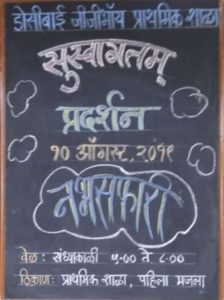 डोसीबाई जीजीभॉय प्राथमिक शाळा
सुस्वागतम्
प्रदर्शन
१० ऑगस्ट, २०१९
नभसफारी
वेळ : संध्याकाळी ५.०० ते ८.००
ठिकाण: प्राथमिक शाळा, पहिला मजला